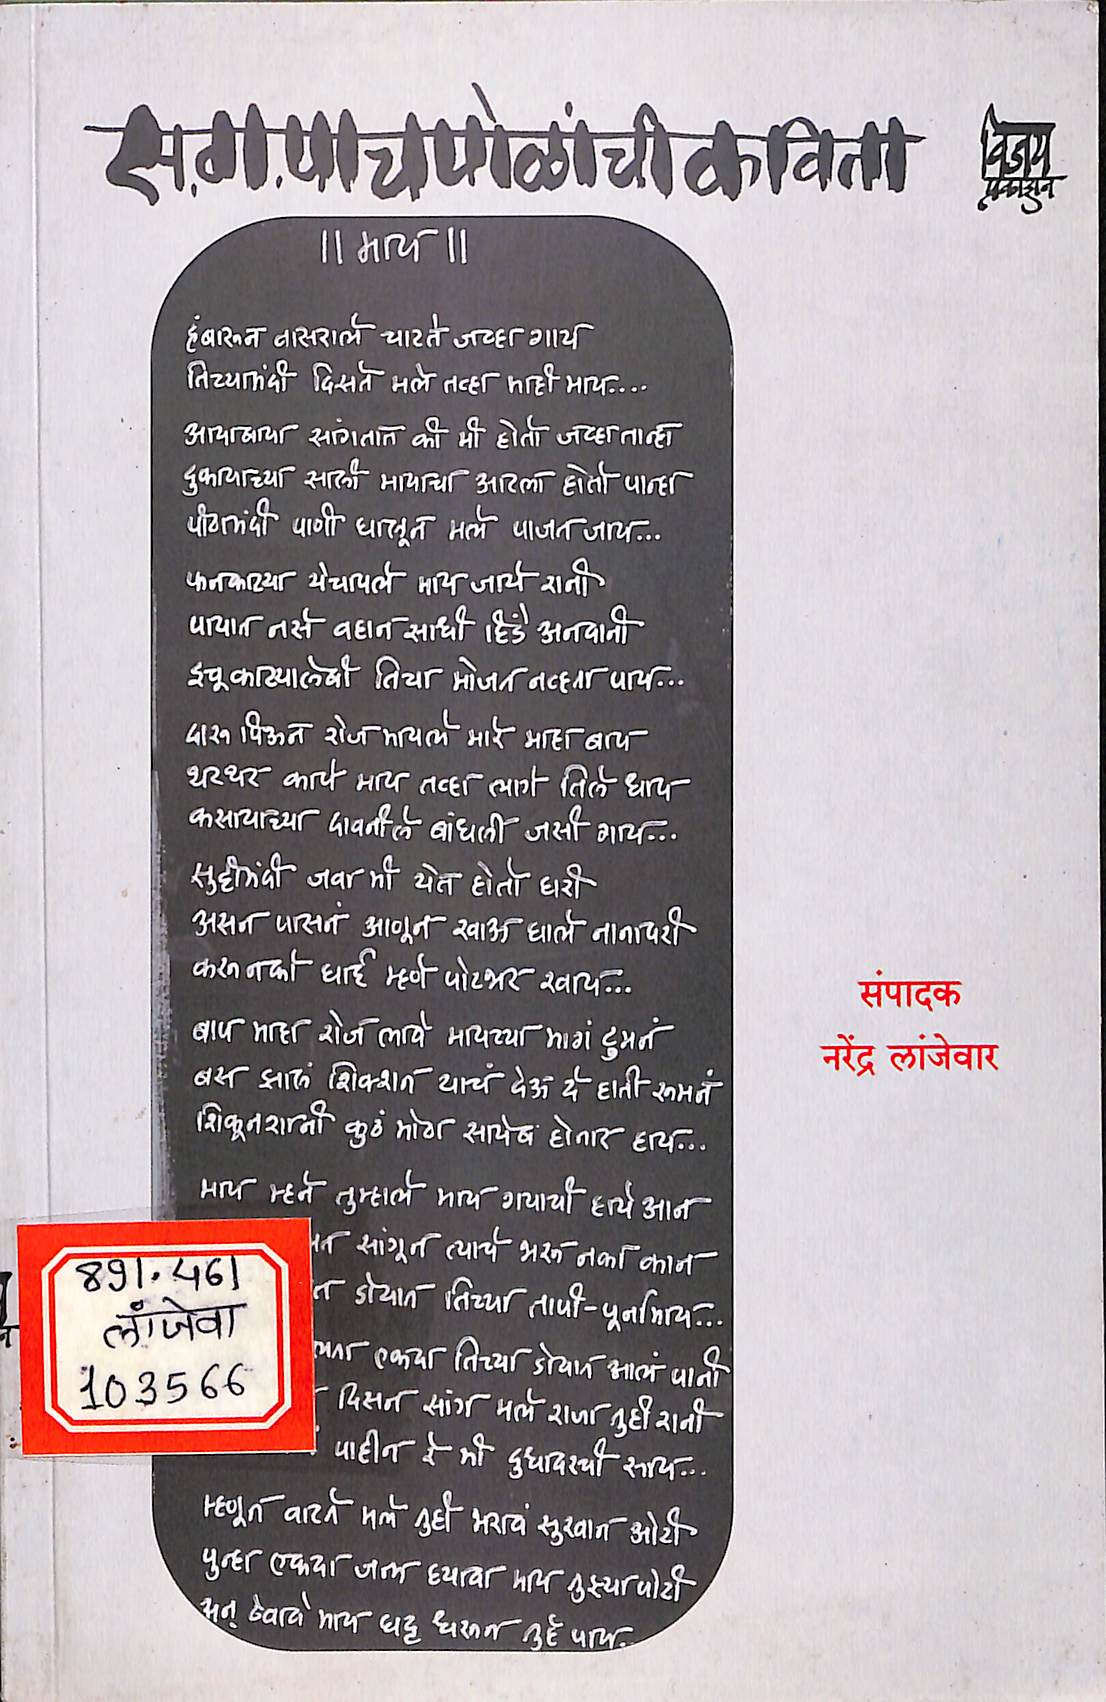 स.ग.पाचपोळांची कविता
विजय
प्रकाशन
॥ माय ॥
हंबरून वासराले चाटते जव्हा गाय
तिच्यामंदी दिसते मले तव्हा माही माय....
आयाबाया सांगतात की मी होतो जव्हा तान्हा
दुकायाच्या साली मायचा आटला होतो पान्हा
पीठामंदी पाणी घालून मले पाजत जाय...
कनकाट्या येचायले माय जाये रानी
पायात नसे वहान साधी हिंडे अनवानी
इचूकाट्यालेबी तिचा मोजत नव्हता पाय...
दारू पिऊन रोज मायले मारे माहा बाप
थरथर कापे माय तव्हा लागे तिले धाप
कसायाच्या दावनीले बांधली जसी गाय...
सुट्टीमंदी जवा मी येत होतो घरी
असन पासनं आणून खाऊ घाले नानापरी
करू नको घाई म्हणे पोटभर खाय...
बाप माहा रोज लावे मायच्या मागं टुमनं
बस झालं शिक्शान याचं देऊ दे हाती रुमनं
शिकून शानी कुठं मोठा सायेब होनार हाय...
माय म्हने तुम्हाले माय गयायी हाये आन
सांगून त्याचे भरू नका कान
डोयात तिच्या तापी-पूर्नामाय...
एकदा तिच्या डोयात आलं पानी
दिसन सांग मले राजा तुही रानी
पाहीन रे मी दुधावरची साय...
म्हणून वाटते मले तुही भरावं सुखानं ओटी
पुन्हा एकदा जन्म घ्यावा माय तुझ्या पोटी
अन् ठेवावे माय घट्ट धरून तुहे पाय..
संपादक
नरेंद्र लांजेवार
891.461
लांजेवा
103566